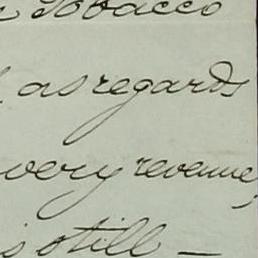 Tobacco
as regards
very revenue,
is still —